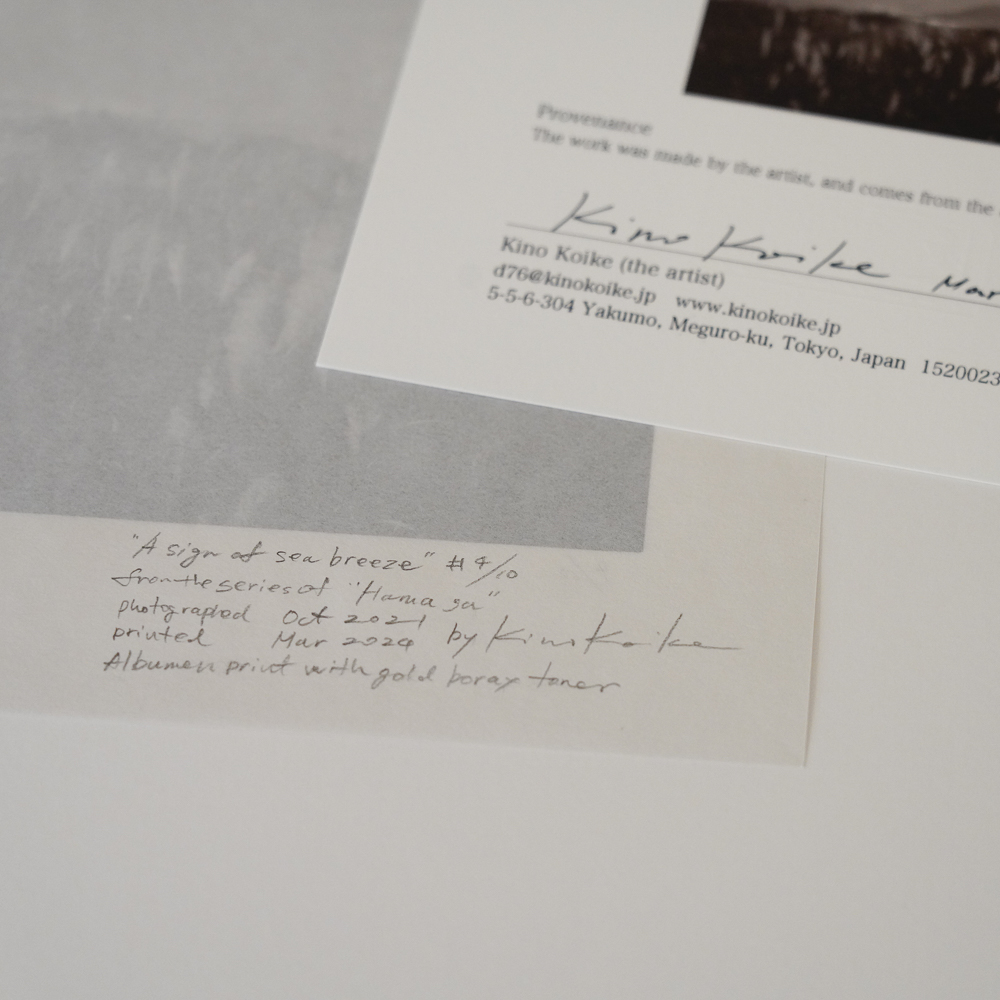 Provenance
The work was made by the artist, and comes from the
Kino Koike Mar
Kino Koike (the artist)
d76@kinokoike.jp www.kinokoike.jp
5-5-6-304 Yakumo, Meguro-ku, Tokyo, Japan 1520023
"A sign of sea breeze" #4/10
from the series of "Hama
photographed Oct 2021
printed Mar 2024 by Kino Koike
Albumen print with gold borax toner